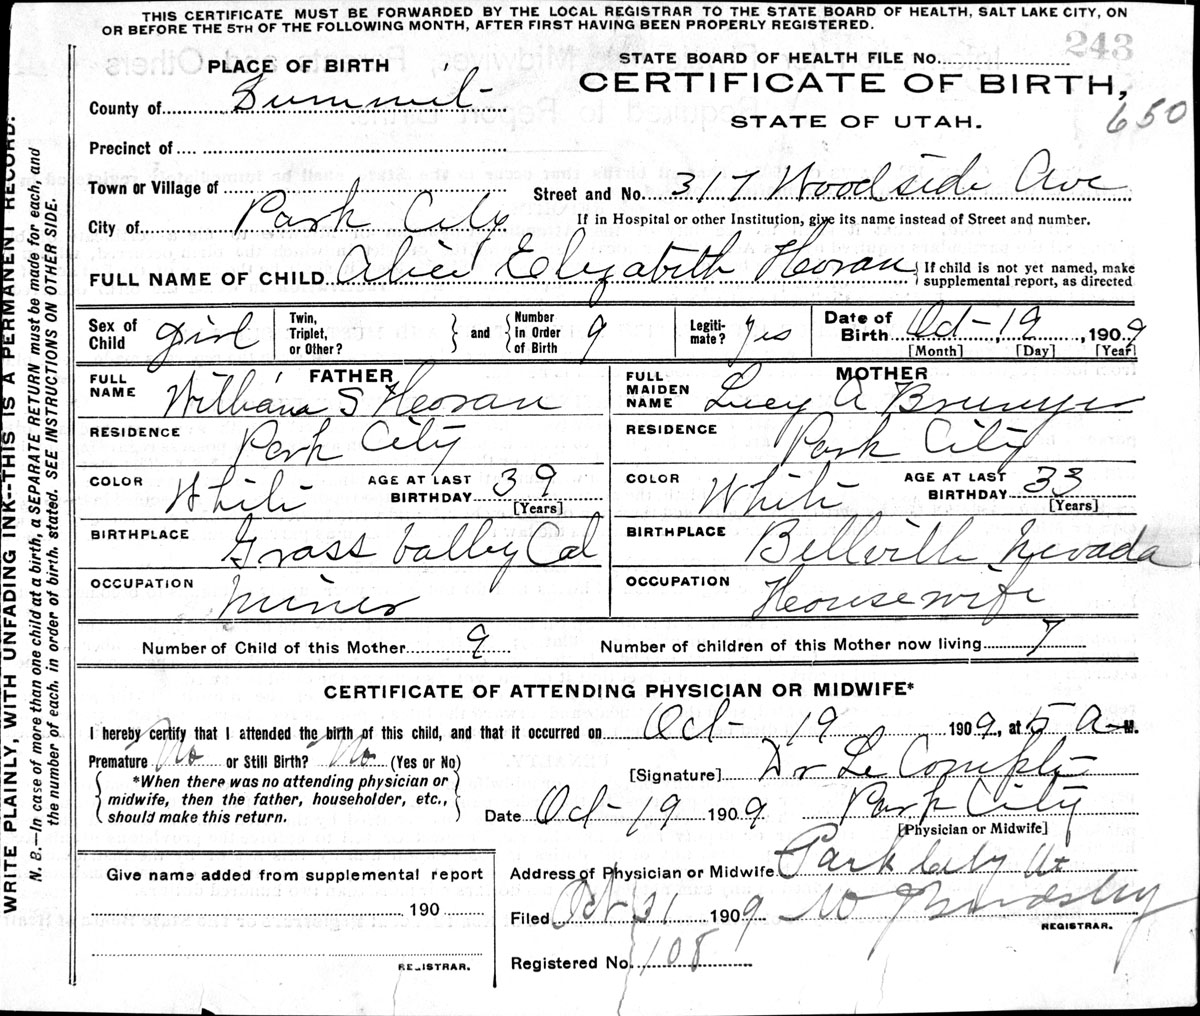 THIS CERTIFICATE MUST BE FORWARDED BY THE LOCAL REGISTRAR TO THE STATE BOARD OF HEALTH, SALT LAKE CITY, ON
OR BEFORE THE 5TH OF THE FOLLOWING MONTH, AFTER FIRST HAVING BEEN PROPERLY REGISTERED.
243
PLACE OF BIRTH
STATE BOARD OF HEALTH FILE No.
County of Summit
CERTIFICATE OF BIRTH,
650
STATE OF UTAH.
Precinct of
Town or Village of
Street and No. 317 Woodside Ave
City of Park City
If in Hospital or other Institution, give its name instead of Street and number.
FULL NAME OF CHILD Elizabeth
If child is not yet named, make
supplemental report, as directed
Sex of Child girl
Twin, Triplet, or Other?
and
Number in Order of Birth 9
Legitimate? Yes
Date of Birth Oct 19, 1909
[Month] [Day] [Year]
FATHER
MOTHER
FULL NAME William S
FULL MAIDEN NAME Lucy A
RESIDENCE Park City
RESIDENCE Park City
COLOR White AGE AT LAST BIRTHDAY 39 [Years]
COLOR White AGE AT LAST BIRTHDAY 33 [Years]
BIRTHPLACE Grass Valley Cal
BIRTHPLACE Bellville Nevada
OCCUPATION Miner
OCCUPATION Housewife
Number of Child of this Mother 9 Number of children of this Mother now living 7
CERTIFICATE OF ATTENDING PHYSICIAN OR MIDWIFE*
I hereby certify that I attended the birth of this child, and that it occurred on Oct 19 1909, at 5 A M.
Premature No or Still Birth? No (Yes or No)
[Signature] Dr Le Compte
*When there was no attending physician or
midwife, then the father, householder, etc.,
should make this return.
Date Oct 19 1909 Park City
[Physician or Midwife]
Give name added from supplemental report
190
REGISTRAR.
Address of Physician or Midwife Park City Ut
Filed Oct 31 1909
REGISTRAR.
Registered No. 108
WRITE PLAINLY, WITH UNFADING INK--THIS IS A PERMANENT RECORD.
N. B.—In case of more than one child at a birth, a SEPARATE RETURN must be made for each, and
the number of each, in order of birth, stated. SEE INSTRUCTIONS ON OTHER SIDE.